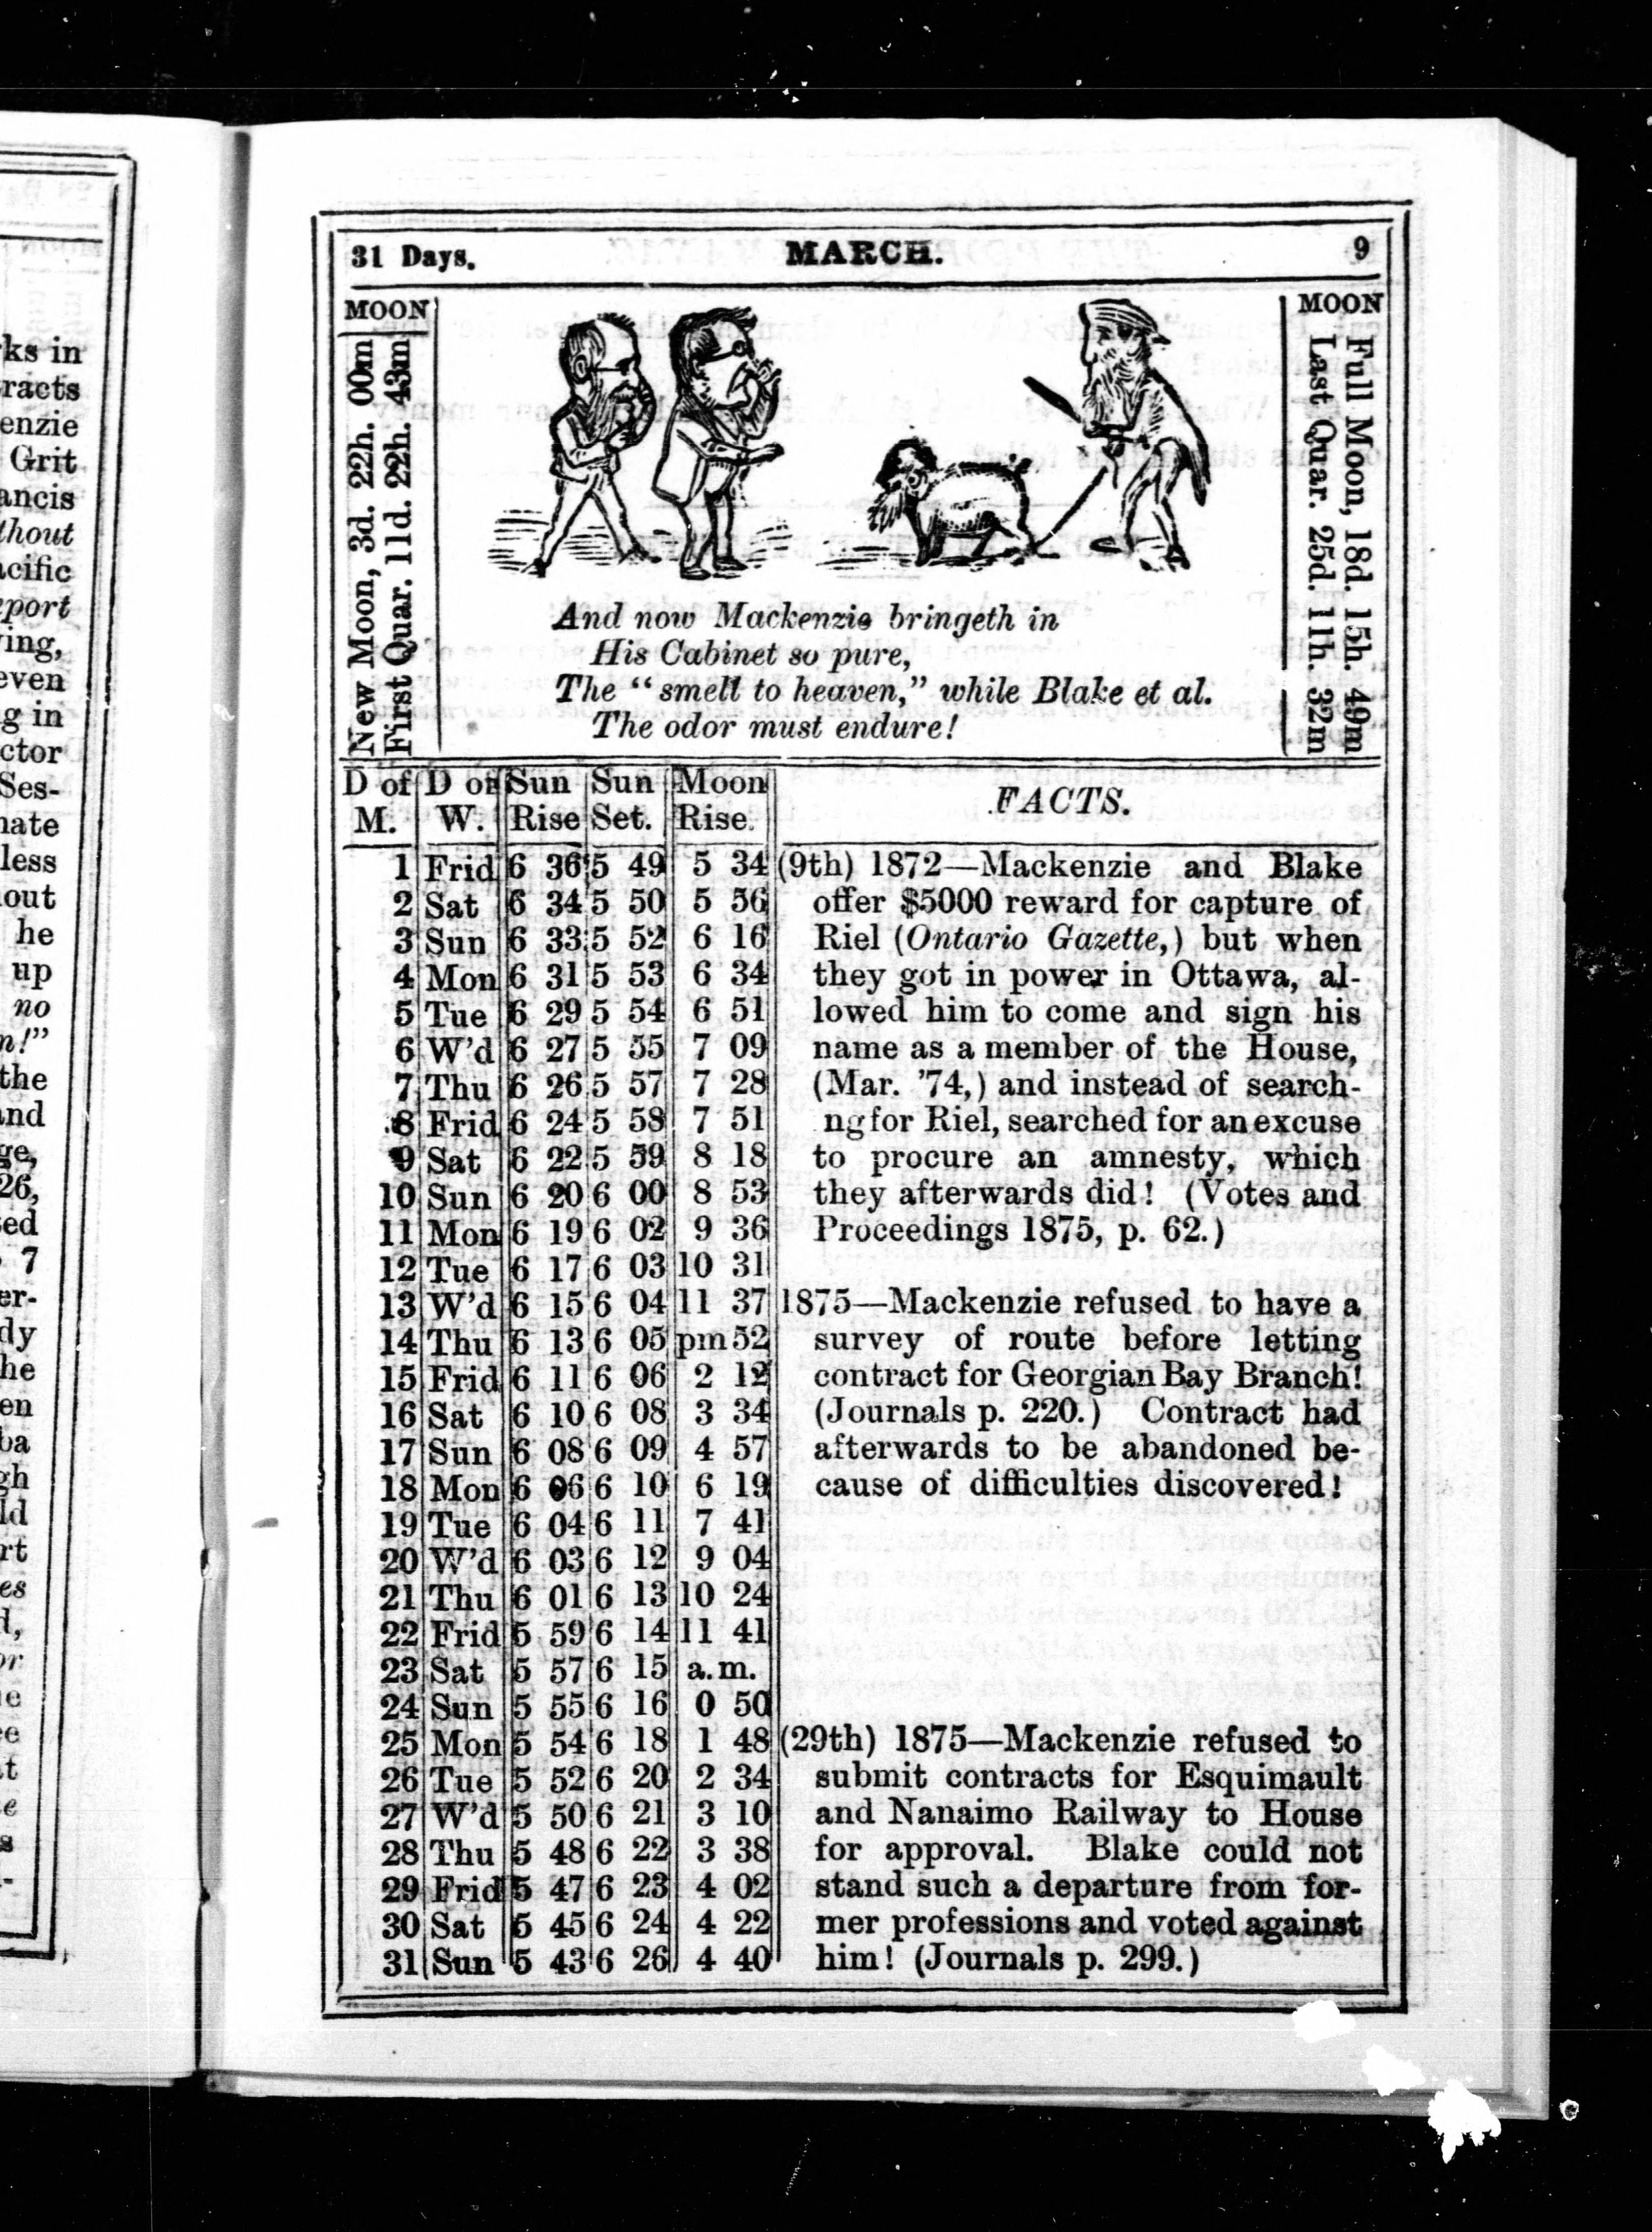 ks in
racts
enzie
Grit
ancis
thout
acific
eport
ing,
even
g in
ctor
Ses-
nate
less
out
he
up
no
n!"
the
and
ge,
26,
sed
7
er-
dy
he
en
ba
gh
ld
rt
es
d,
or
e
ce
at
e
s
-
31 Days. MARCH. 9
MOON
New Moon, 3d. 22h. 00m
First Quar. 11d. 22h. 43m
MOON
Full Moon, 18d. 15h. 49m
Last Quar. 25d. 11h. 32m
And now Mackenzie bringeth in
His Cabinet so pure,
The "smell to heaven," while Blake et al.
The odor must endure!
D of D of Sun Sun Moon
M. W. Rise Set. Rise.
FACTS.
1 Frid 6 36 5 49 5 34
2 Sat 6 34 5 50 5 56
3 Sun 6 33 5 52 6 16
4 Mon 6 31 5 53 6 34
5 Tue 6 29 5 54 6 51
6 W'd 6 27 5 55 7 09
7 Thu 6 26 5 57 7 28
8 Frid 6 24 5 58 7 51
9 Sat 6 22 5 59 8 18
10 Sun 6 20 6 00 8 53
11 Mon 6 19 6 02 9 36
12 Tue 6 17 6 03 10 31
13 W'd 6 15 6 04 11 37
14 Thu 6 13 6 05 pm 52
15 Frid 6 11 6 06 2 12
16 Sat 6 10 6 08 3 34
17 Sun 6 08 6 09 4 57
18 Mon 6 06 6 10 6 19
19 Tue 6 04 6 11 7 41
20 W'd 6 03 6 12 9 04
21 Thu 6 01 6 13 10 24
22 Frid 5 59 6 14 11 41
23 Sat 5 57 6 15 a.m.
24 Sun 5 55 6 16 0 50
25 Mon 5 54 6 18 1 48
26 Tue 5 52 6 20 2 34
27 W'd 5 50 6 21 3 10
28 Thu 5 48 6 22 3 38
29 Frid 5 47 6 23 4 02
30 Sat 5 45 6 24 4 22
31 Sun 5 43 6 26 4 40
(9th) 1872—Mackenzie and Blake
offer $5000 reward for capture of
Riel (Ontario Gazette,) but when
they got in power in Ottawa, al-
lowed him to come and sign his
name as a member of the House,
(Mar. '74,) and instead of search-
ng for Riel, searched for an excuse
to procure an amnesty, which
they afterwards did! (Votes and
Proceedings 1875, p. 62.)
1875—Mackenzie refused to have a
survey of route before letting
contract for Georgian Bay Branch!
(Journals p. 220.) Contract had
afterwards to be abandoned be-
cause of difficulties discovered!
(29th) 1875—Mackenzie refused to
submit contracts for Esquimault
and Nanaimo Railway to House
for approval. Blake could not
stand such a departure from for-
mer professions and voted against
him! (Journals p. 299.)